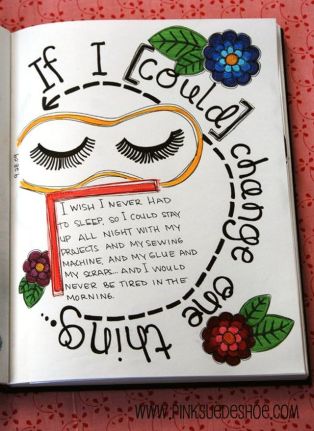 If I [could] change one thing...
9.28.09
I WISH I NEVER HAD
TO SLEEP, SO I COULD STAY
UP ALL NIGHT WITH MY
PROJECTS AND MY SEWING
MACHINE, AND MY GLUE AND
MY SCRAPS... AND I WOULD
NEVER BE TIRED IN THE
MORNING.
WWW.PINKSUEDESHOE.COM